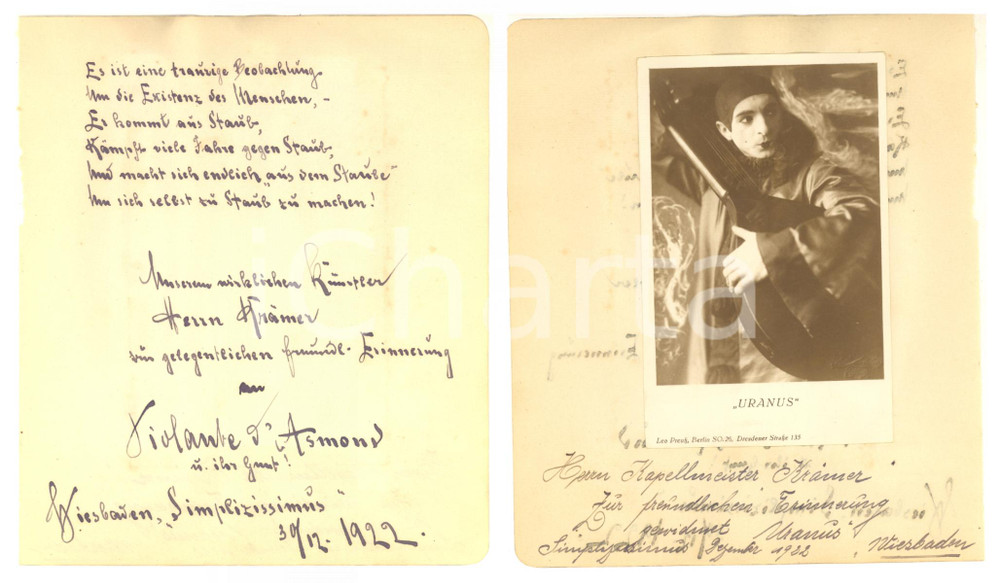 Es ist eine traurige Beobachtung
Um die Existenz des Menschen, –
Er kommt aus Staub,
Kämpft viele Jahre gegen Staub,
Und macht sich endlich „aus dem Staube“
Um sich selbst zu Staub zu machen!
Unserem wirklichen Künstler
Herrn Krämer
zur gelegentlichen freundl. Erinnerung
an
Violante d'Asmond
u. ihr
Wiesbaden, „Simplizissimus“
30/12. 1922.
iCharta
„URANUS“
Leo Preuß, Berlin SO. 26, Dresdener Straße 135
Herrn Kapellmeister Krämer
Zur freundlichen Erinnerung
gewidmet „Uranus“
Simplizissimus Dezember 1922 Wiesbaden